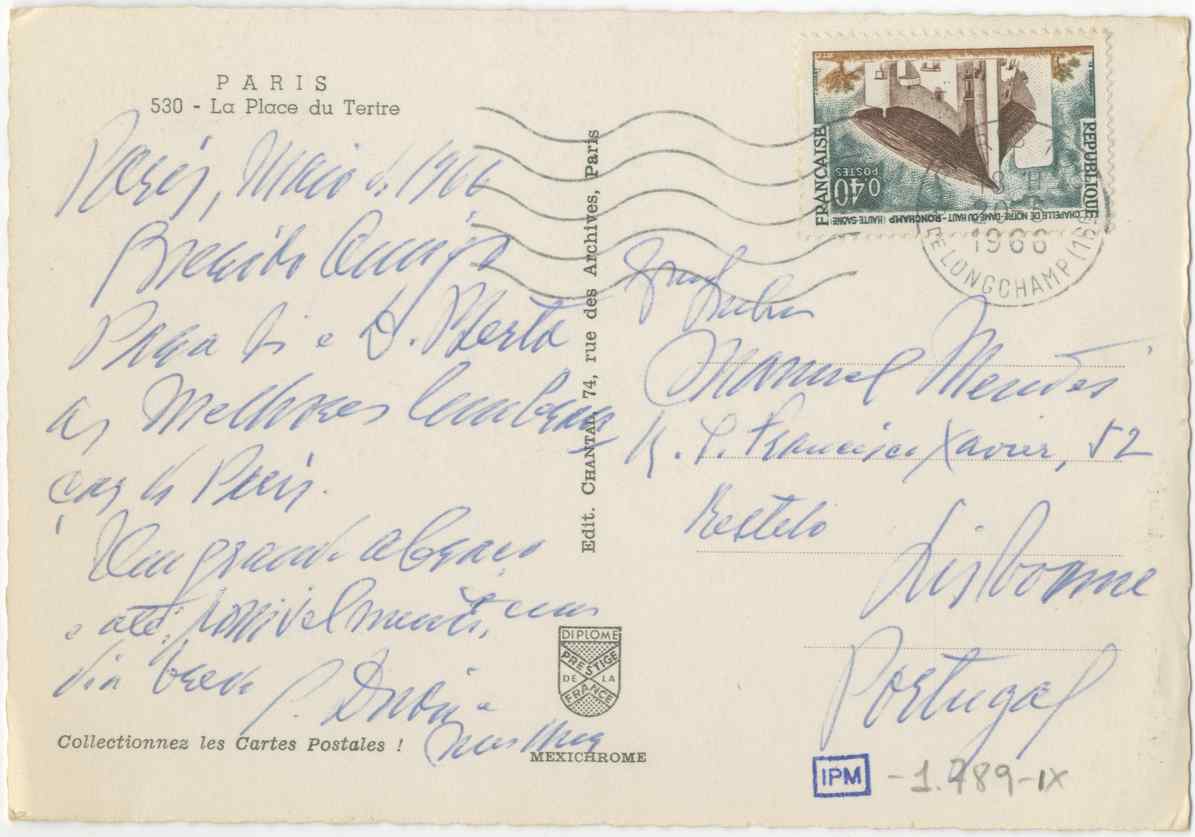 PARIS
530 - La Place du Tertre
Paris, Maio de 1966
Querido Amigo
Para si e D. Berta
as melhores lembran
ças de Paris.
Um grande abraço
e até, possivelmente, um
dia breve
Collectionnez les Cartes Postales !
Edit. CHANTAL, 74, rue des Archives, Paris
DIPLOME
PRESTIGE
DE LA
FRANCE
MEXICHROME
RÉPUBLIQUE
FRANÇAISE
0,40
POSTES
CHAPELLE DE NOTRE-DAME-DU-HAUT - RONCHAMP (HAUTE-SAÔNE)
1966
DE LONGCHAMP (16
Manuel Mendes
R. S. Francisco Xavier, 52
Restelo
Lisbonne
Portugal
IPM - 1.789-IX